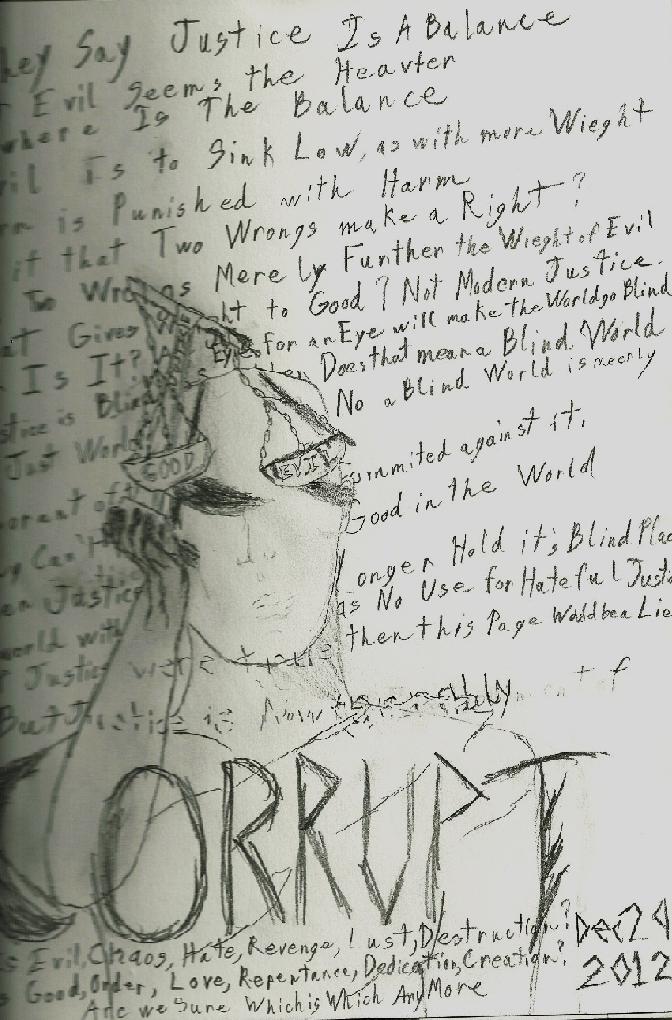 hey Say Justice Is A Balance
Evil Seems the Heavier
where Is The Balance
is to Sink Low, as with more Wieght
is Punished with Harm
it that Two Wrongs make a Right?
Two Wrongs Merely Further the Wieght of Evil
at Gives ht to Good? Not Modern Justice.
Is It? Eye for an Eye will make the World go Blind
stice is Blind Does that mean a Blind World
Just World No a Blind World is merely
orant of ommited against it.
y Can't Good in the World
en Justice onger Hold it's Blind Plac
world with as No Use for Hateful Justi
Justice were then this Page Would be a Lie
But Justice is now
GOOD
EVIL
CORRUPT
Evil, Chaos, Hate, Revenge, Lust, Destruction?
Good, Order, Love, Repentance, Dedication, Creation?
Are we Sure Which is Which Any More
Dec 24
2012